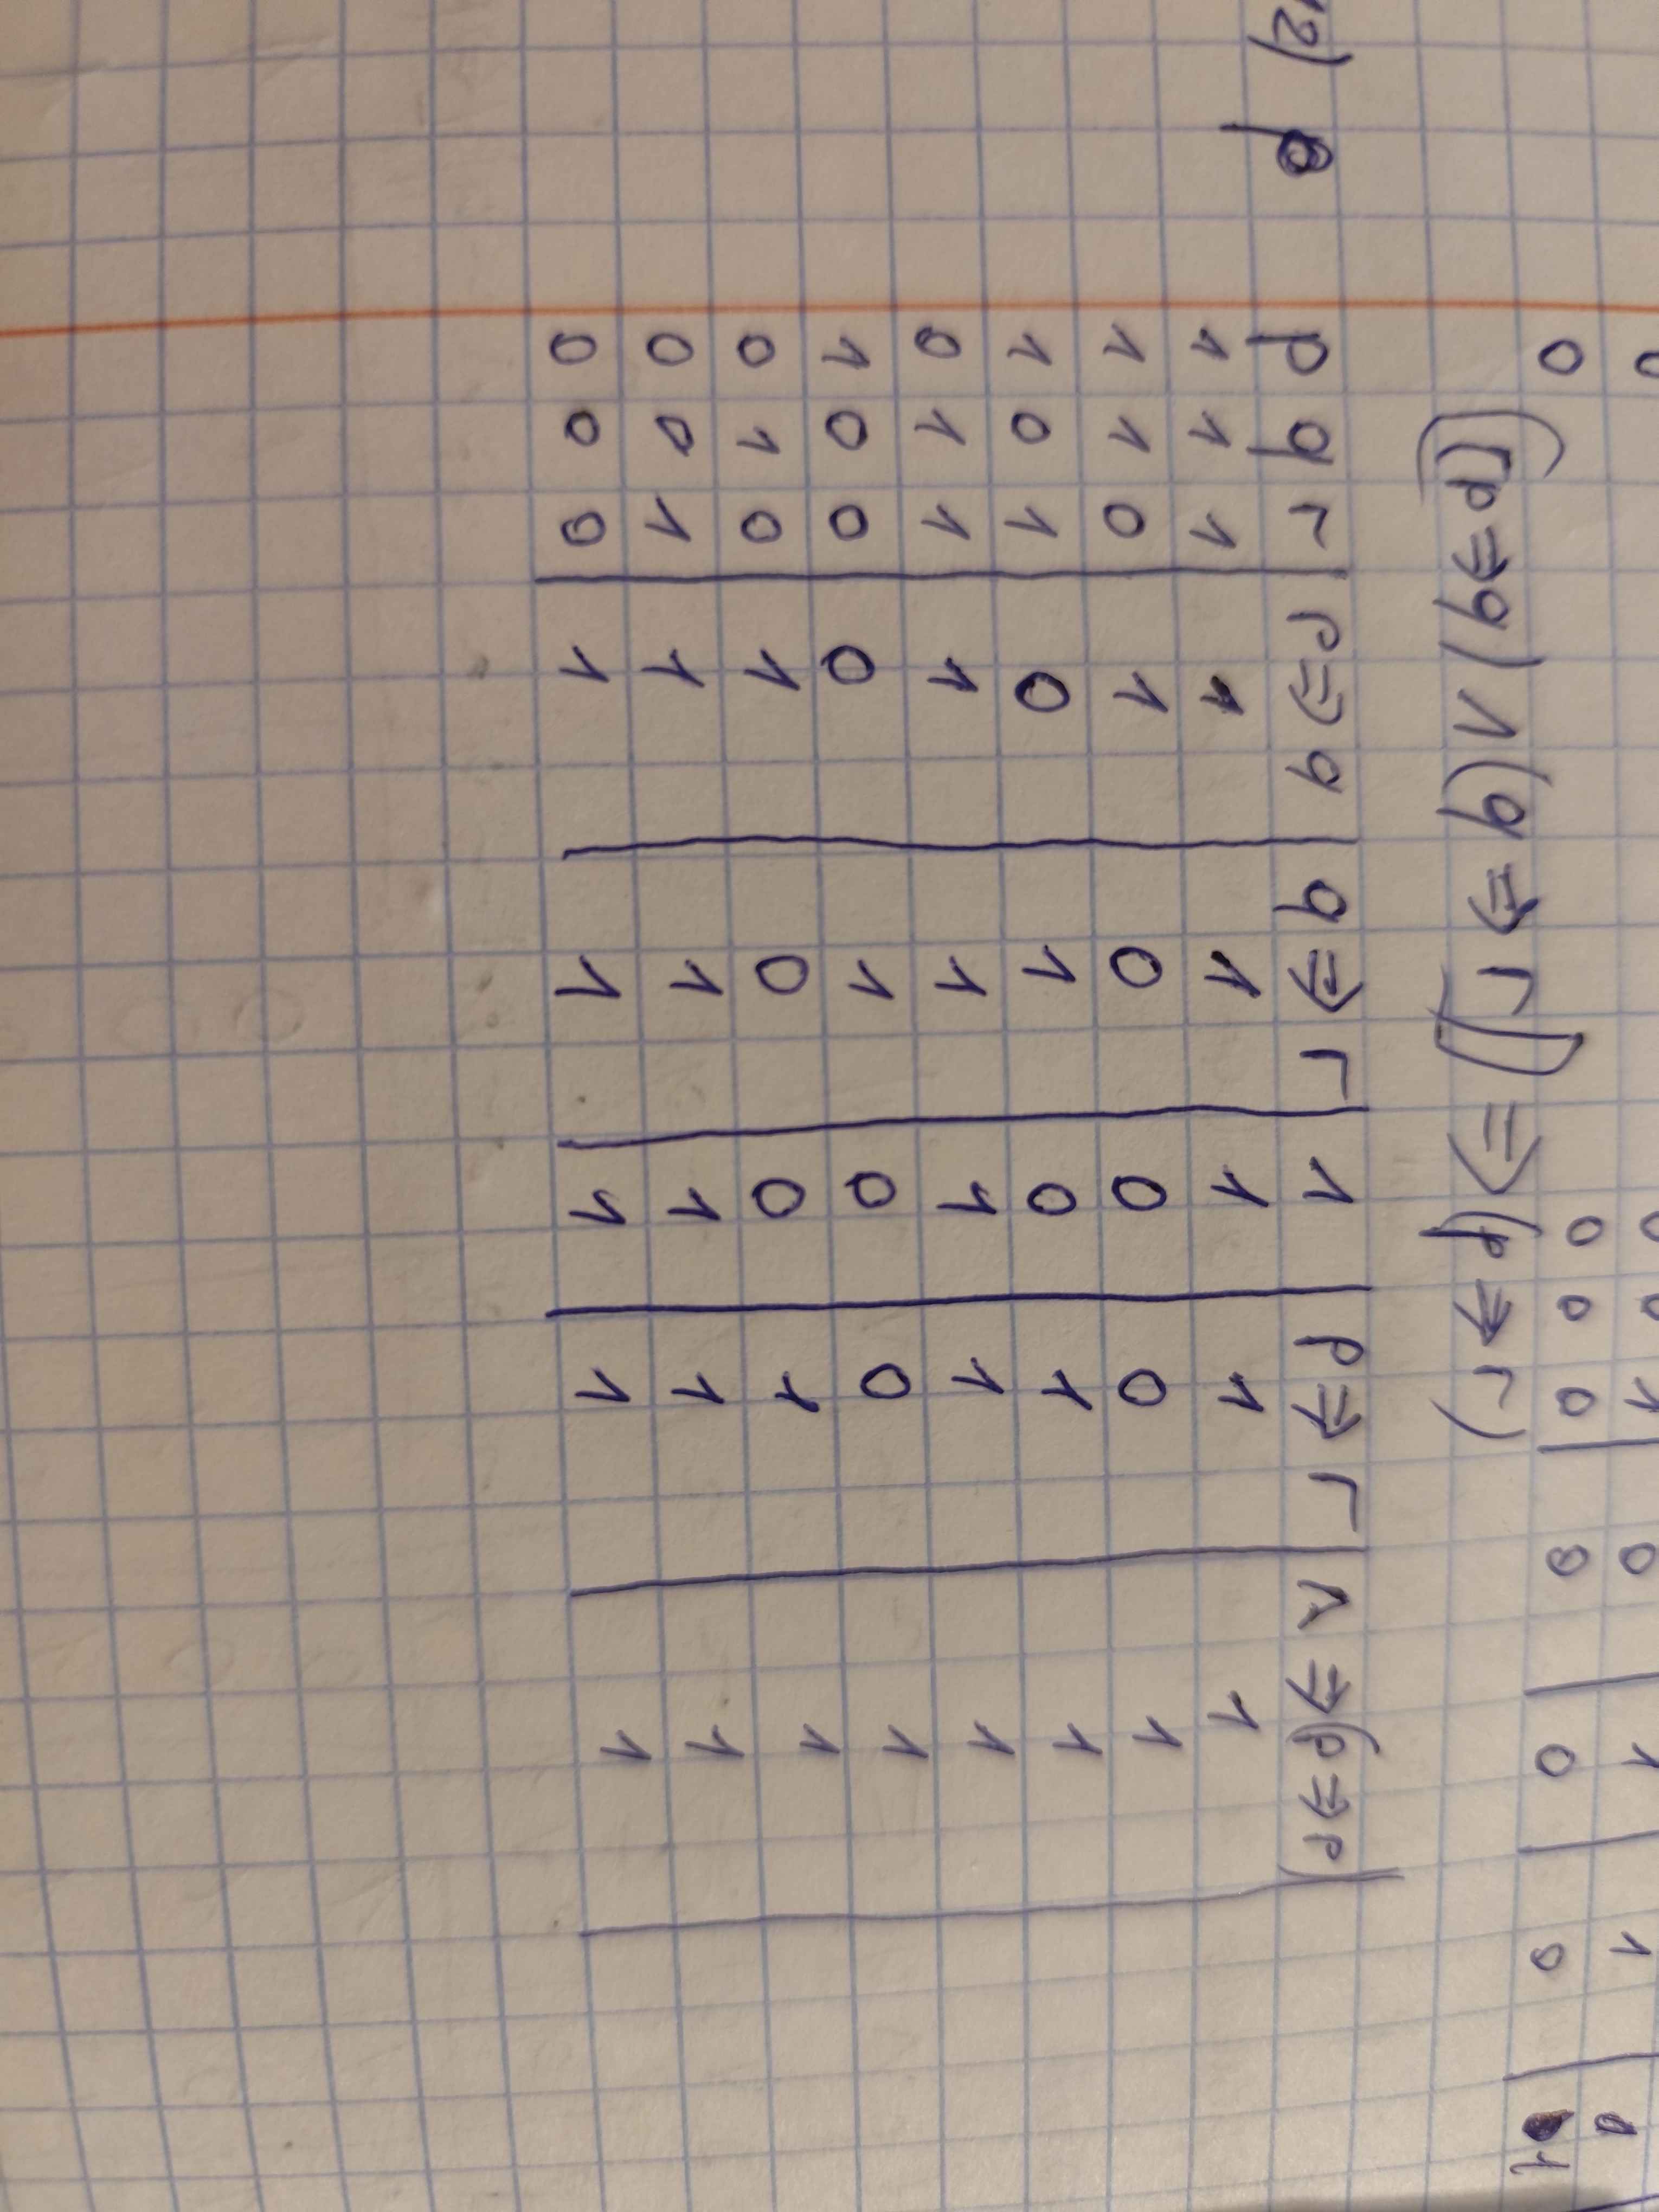 0 0 1 | 0 | 1 | 1 |
0 0 0 0 | 0 | 0 | 0 | 1
[(p⇒q) ∧ (q ⇒ r)] ⇒ (p ⇒ r)
12) p q r | p ⇒ q | q ⇒ r | ∧ | p ⇒ r | ∧ ⇒ (p ⇒ p) |
1 1 1 | 1 | 1 | 1 | 1 | 1
1 1 0 | 1 | 0 | 0 | 0 | 1
1 0 1 | 0 | 1 | 0 | 1 | 1
0 1 1 | 1 | 1 | 1 | 1 | 1
1 0 0 | 0 | 1 | 0 | 0 | 1
0 1 0 | 1 | 0 | 0 | 1 | 1
0 0 1 | 1 | 1 | 1 | 1 | 1
0 0 0 | 1 | 1 | 1 | 1 | 1